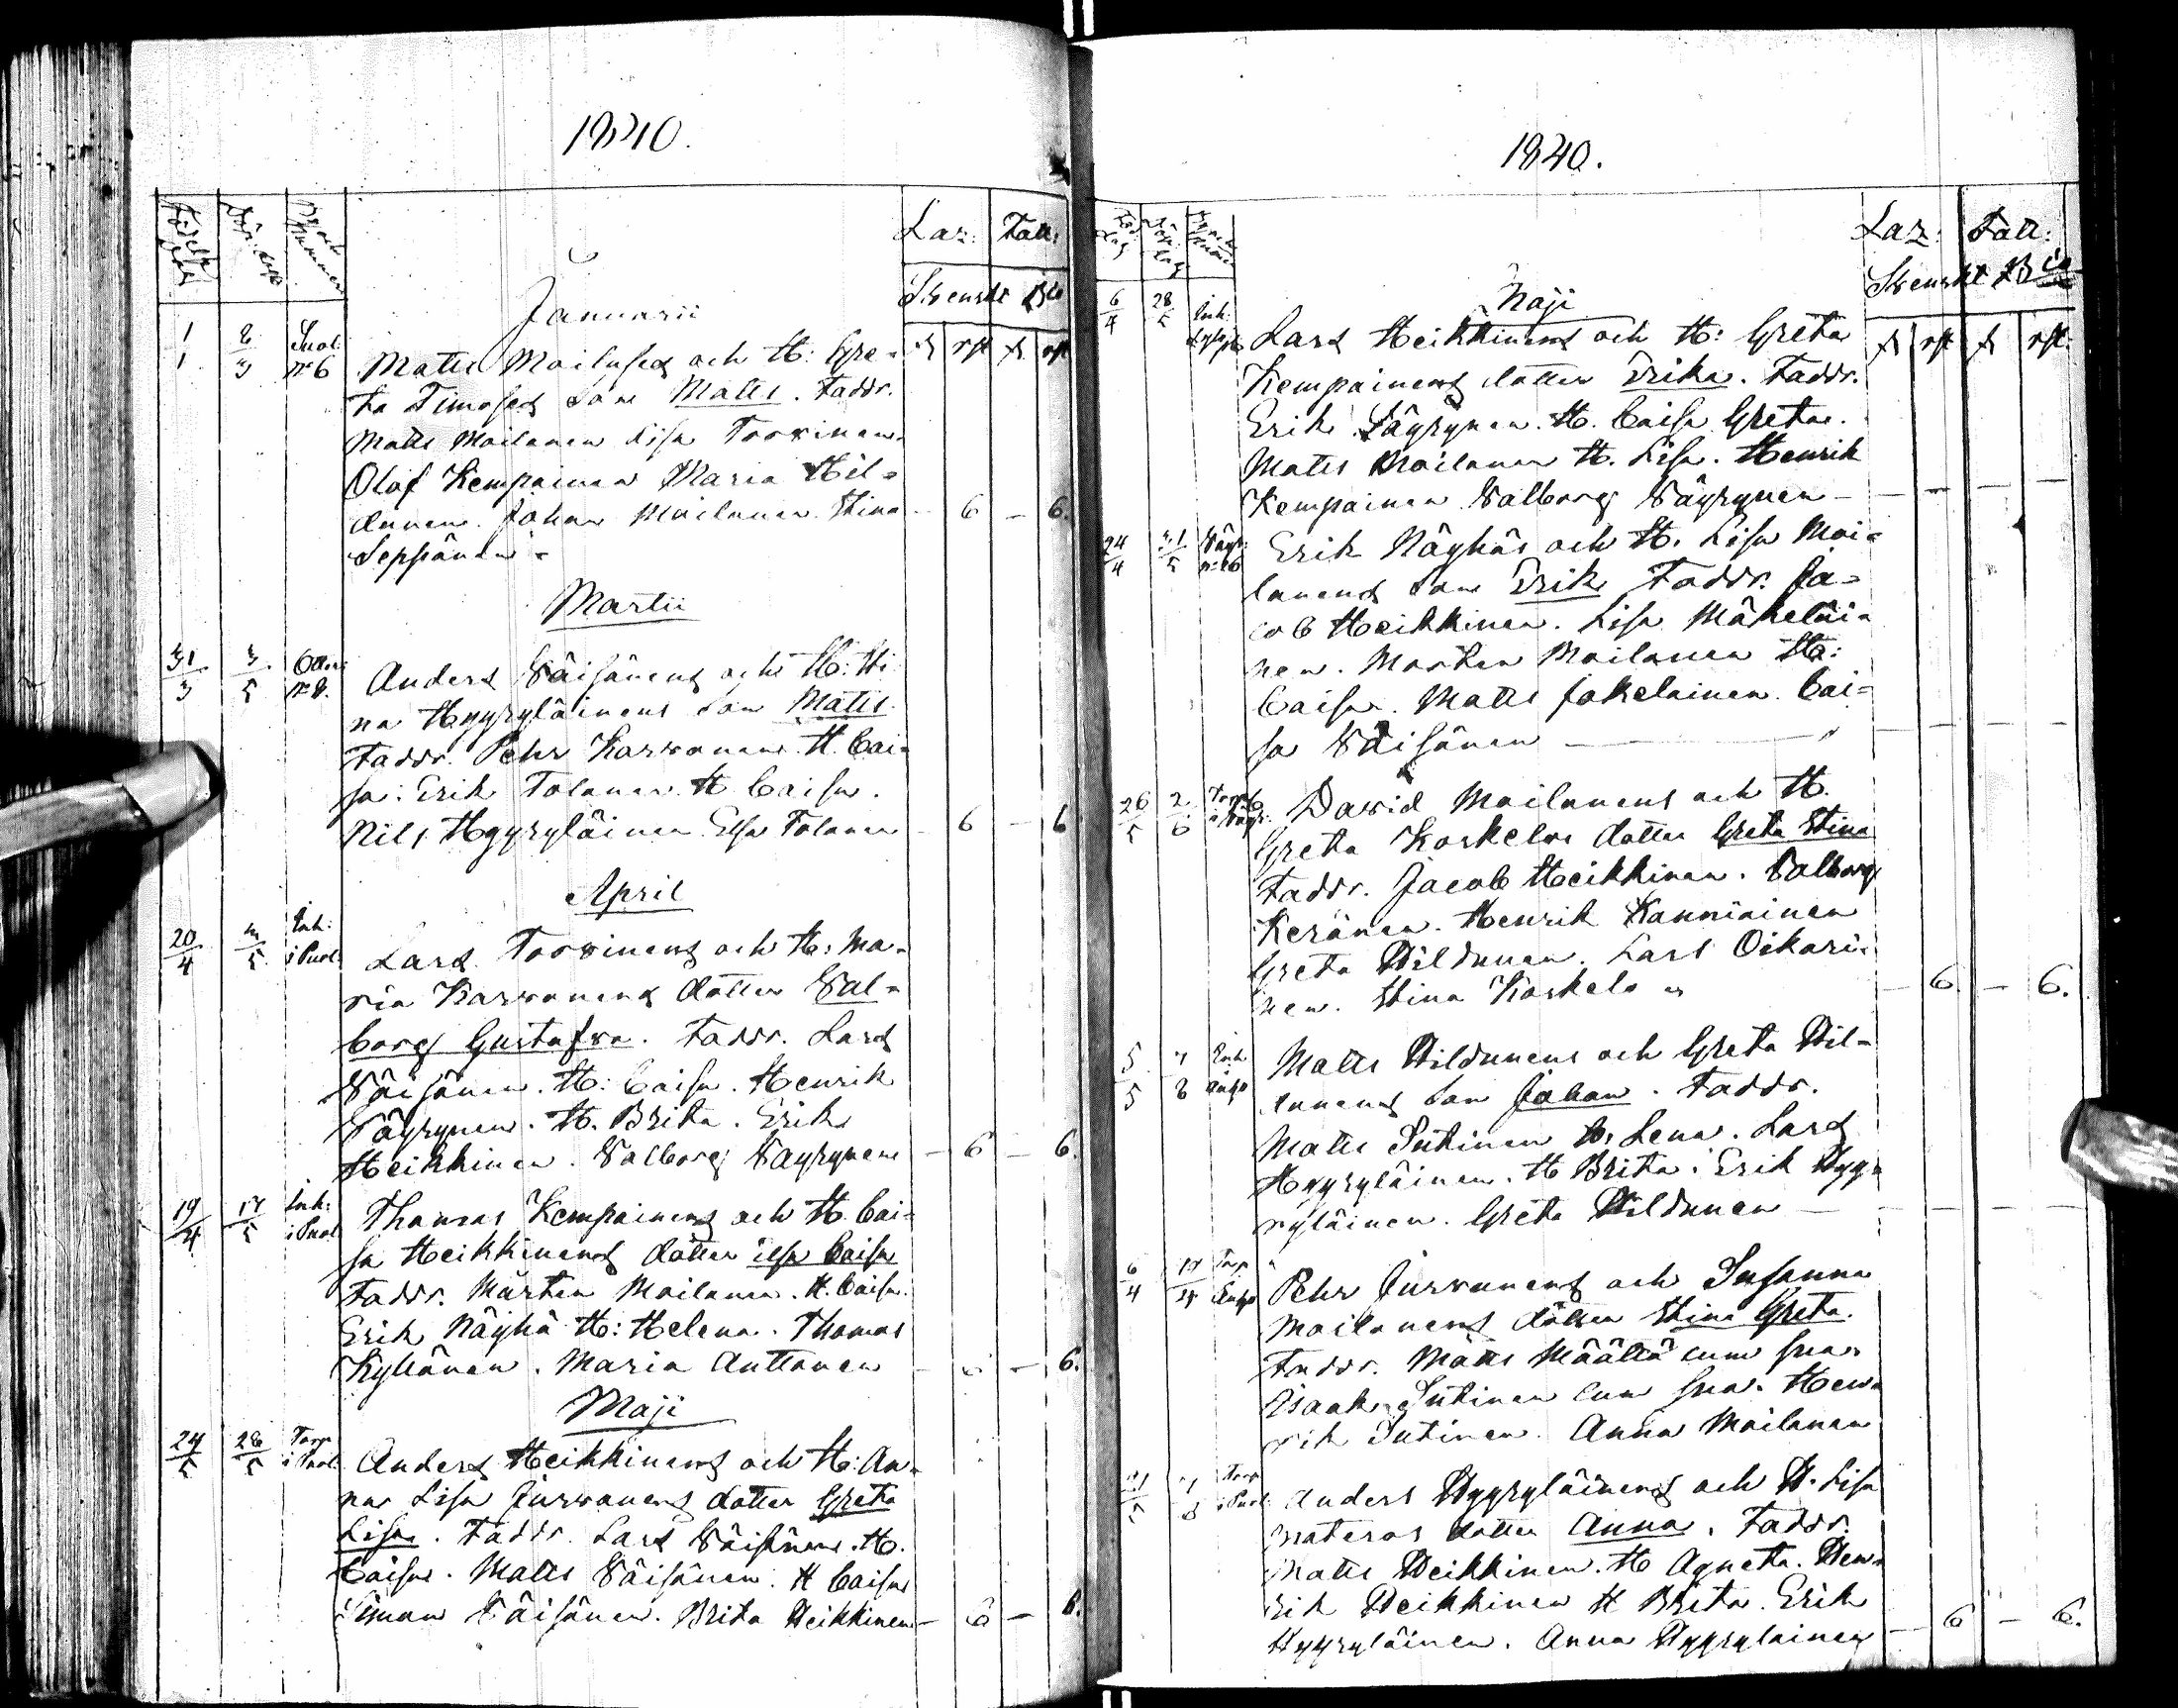 1840.
Laz: Fatt:
Svenskt Bco
Januarii
1/1 Suol: No 6 Matts Moilases och H: Gre-
ta Timoses son Matts. Faddr.
Matts Moilanen Lisa Torvinen.
Olof Kempainen Maria Hil-
dunen. Johan Moilanen Stina - 6 - 6.
Seppänen -
Martii
31/3 3/5 No 8. Anders Väisänens och H: Sti-
na Hyyryläinens son Matts
Faddr. Pehr Karvonen H. Cai-
sa. Erik Tolonen H Caisa.
Nils Hyyryläinen Elsa Tolonen - 6 - 6
April
20/4 Inh: i Puol: Lars Torvinens och H: Ma-
ria Karvonens dotter Val-
borg Gustafva. Faddr. Lars
Väisänen. H: Caisa. Henrik
Väyrynen. H. Brita. Erik
Heikkinen. Valborg Väyrynen - 6 - 6.
19/4 17/5 Inh: i Puol Thomas Kempainens och H. Cai-
sa Heikkinens dotter Elsa Caisa
Faddr. Mårten Moilanen. H. Caisa.
Erik Näyhä H: Helena. Thomas
Kyllönen. Maria Anttonen - 6 - 6.
Maji
24/5 28/5 Torp i Puol Anders Heikkinens och H: An-
na Lisa Jurvanens dotter Greta
Lisa. Faddr. Lars Väisänen. H.
Caisa. Matts Väisänen. H Caisa
Simon Väisänen. Brita Heikkinen - 6 - 6.
1840.
Laz: Fatt:
Svenskt Bco
Maji
28/5 Inh: Lars Heikkinens och H: Greta
Kempainens dotter Erika. Faddr.
Erik Väyrynen. H. Caisa Greta.
Matts Moilanen H. Lisa. Henrik
Kempainen Valborg Väyrynen -
24/4 Erik Näyhäs och H. Lisa Moi-
lanens son Erik Faddr. Ja-
cob Heikkinen. Lisa Mäkeläi-
nen. Morten Moilanen H:
Caisa. Matts Jokelainen. Cai-
sa Väisänen
26/5 2/6 David Moilanens och H.
Greta Koskelos dotter Greta Stina
Faddr. Jacob Heikkinen. Valborg
Keränen. Henrik Kanniainen
Greta Hildunen. Lars Oikari-
nen. Stina Koskelo - 6. - 6.
5/5 Inh Matts Hildunens och Greta Hil-
dunens son Johan. Faddr.
Matts Sutinen H: Lena. Lars
Hyyryläinen. H Brita. Erik Hyy-
ryläinen. Greta Hildunen -
6/4 Torp Pehr Jurvanens och Susanna
Moilanens dotter Stina Greta.
Faddr. Matts Määttä cum sua.
Isaak Sutinen cum sua. Hen-
rik Sutinen. Anna Moilanen
Torp i Puol Anders Hyyryläinens och H. Lisa
Materos dotter Anna. Faddr.
Matts Heikkinen. H Agneta. Hen-
rik Heikkinen H Brita. Erik
Hyyryläinen. Anna Hyyrylainen - 6 - 6.